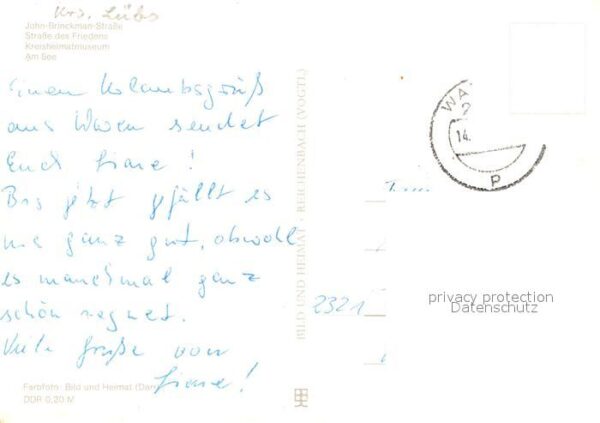 Krs. Lübs
John-Brinckman-Straße
Straße des Friedens
Kreisheimatmuseum
Am See
Einen Urlaubsgruß
aus Waren sendet
Euch Liane!
Bis jetzt gefällt es
uns ganz gut, obwohl
es manchmal ganz
schön regnet.
Viele Grüße von
Liane!
Farbfoto: Bild und Heimat
DDR 0,20 M
BILD UND HEIMAT · REICHENBACH (VOGTL.)
WA
2
14.
P
2321
privacy protection
Datenschutz